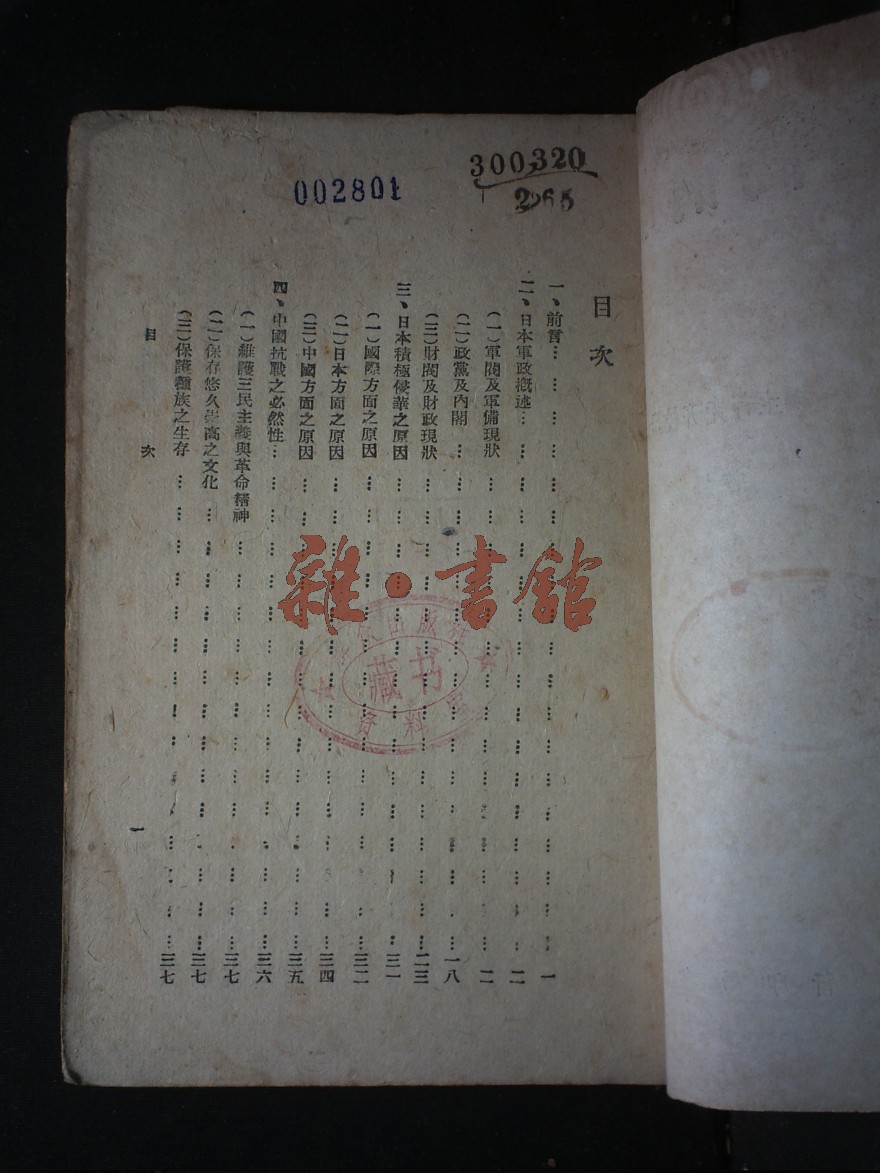 002801
300,320
2265
目次
一、前言… … … … … … … … … … … … … 一
二、日本軍政概述… … … … … … … … … … … 二
(一)軍閥及軍備現狀 … … … … … … … … … … 二
(二)政黨及內閣 … … … … … … … … … … … 一八
(三)財閥及財政現狀 … … … … … … … … … … 二三
三、日本積極侵華之原因 … … … … … … … … … … 三一
(一)國際方面之原因 … … … … … … … … … … 三二
(二)日本方面之原因 … … … … … … … … … … 三四
(三)中國方面之原因 … … … … … … … … … … 三五
四、中國抗戰之必然性… … … … … … … … … … 三六
(一)維護三民主義與革命精神 … … … … … … … … … 三七
(二)保存悠久崇高之文化 … … … … … … … … … … 三七
(三)保護種族之生存 … … … … … … … … … … 三七
目 次
一
雜·書館
出版社
藏书
資料